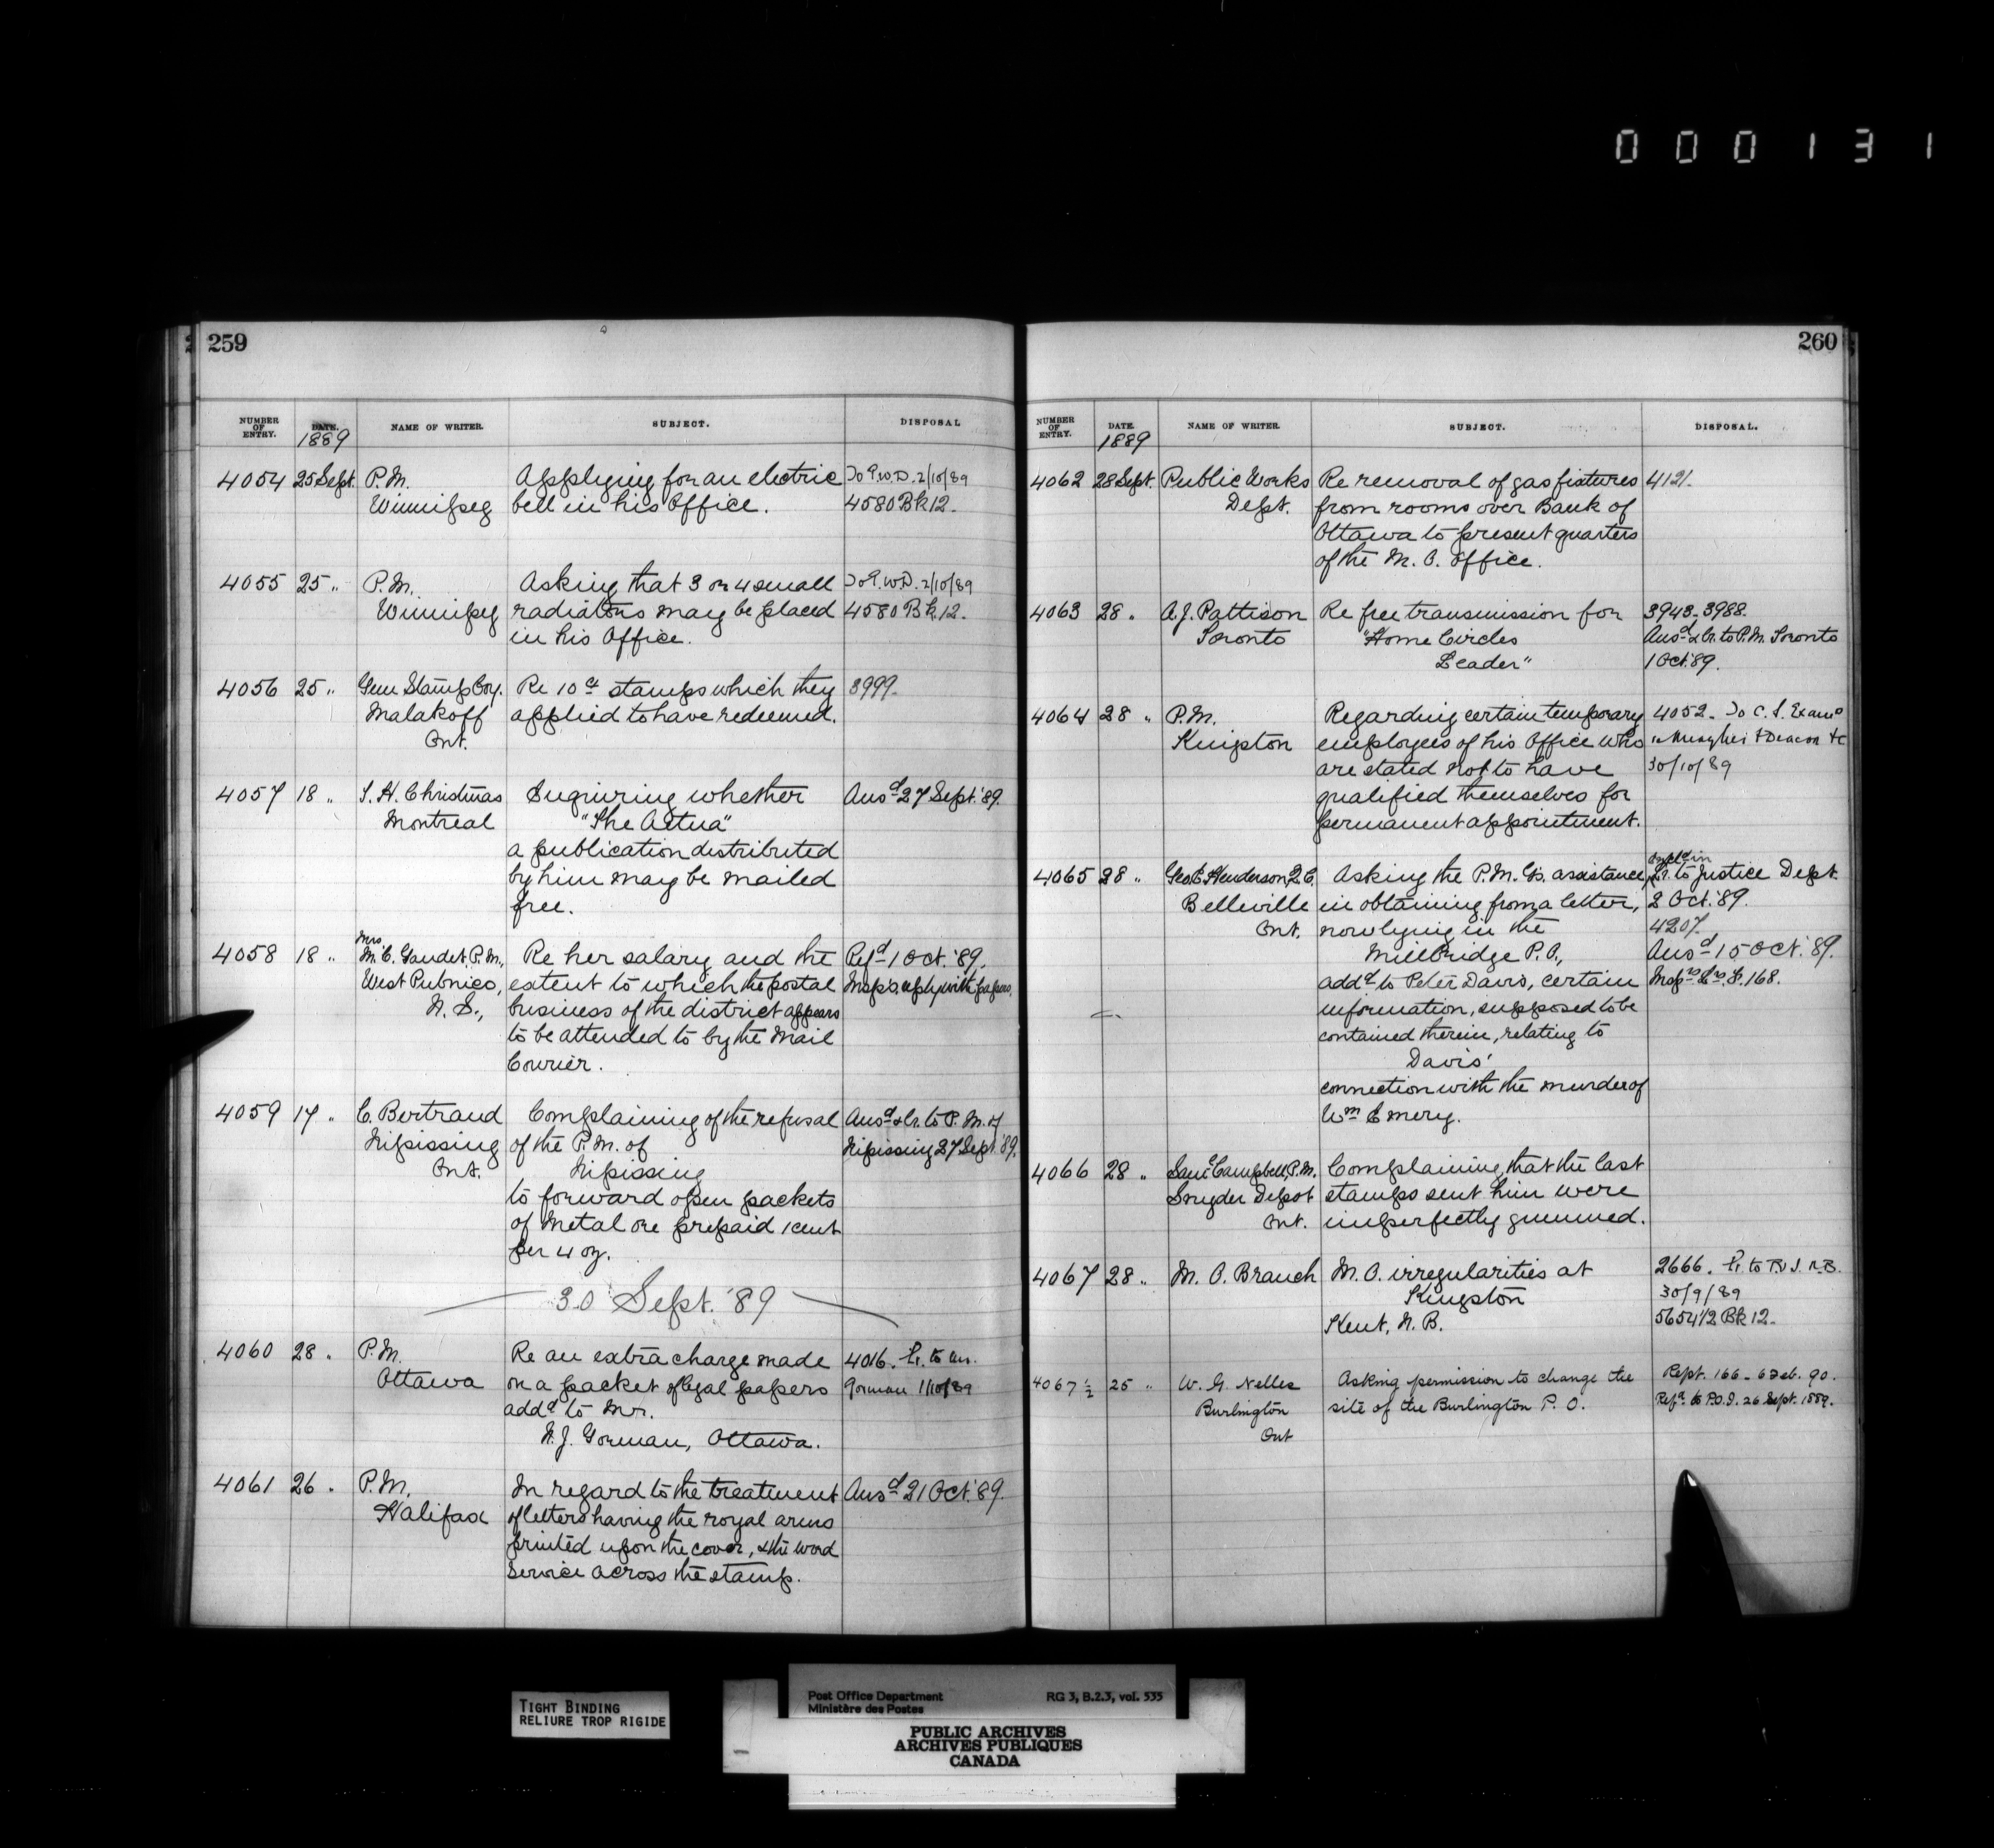 000131
259
NUMBER OF ENTRY. DATE. NAME OF WRITER. SUBJECT. DISPOSAL
1889
4054 25 Sept. P.M. Applying for an electric To P.W.D. 2/10/89
Winnipeg bell in his Office. 4580 Bk 12.
4055 25 " P.M. Asking that 3 or 4 small To P.W.D. 2/10/89
Winnipeg radiators may be placed 4580 Bk 12.
in his Office.
4056 25 " Gem Stamp Coy. Re 10ct stamps which they 3999.
Malakoff applied to have redeemed.
Ont.
4057 18 " T. H. Christmas Enquiring whether Ansd 27 Sept. '89.
Montreal "The Aetna"
a publication distributed
by him may be mailed
free.
Mrs.
4058 18 " M. C. Gaudet, P.M., Re her salary and the Refd 1 Oct. '89.
West Pubnico, extent to which the postal Insp's. reply with papers.
N. S., business of the district appears
to be attended to by the Mail
Courier.
4059 17 " C. Bertrand Complaining of the refusal Ansd & Lr. to P. M. of
Nipissing of the P.M. of Nipissing 27 Sept. '89.
Ont. Nipissing
to forward open packets
of Metal ore prepaid 1 cent
per 4 oz.
30 Sept. '89
4060 28 " P.M. Re an extra charge made 4016. Lr. to Mr.
Ottawa on a packet of legal papers Gorman 1/10/89
addd to Mr.
N. J. Gorman, Ottawa.
4061 26 " P.M. In regard to the treatment Ansd 21 Oct. '89.
Halifax of letters having the royal arms
printed upon the cover, & the word
Service across the stamp.
260
NUMBER OF ENTRY. DATE. NAME OF WRITER. SUBJECT. DISPOSAL.
1889
4062 28 Sept. Public Works Re removal of gas fixtures 4121.
Dept. from rooms over Bank of
Ottawa to present quarters
of the M. O. Office.
4063 28 " A. J. Pattison Re free transmission for 3943. 3988.
Toronto "Home Circles Ansd & Lr. to P.M. Toronto
Leader" 1 Oct. '89.
4064 28 " P.M. Regarding certain temporary 4052. To C. S. Examrs
Kingston employees of his Office who " & Deacon &c
are stated not to have 30/10/89
qualified themselves for
permanent appointment.
4065 28 " Geo. E. Henderson, Q.C. Asking the P.M.G's. assistance Lr. to Justice Dept.
Belleville in obtaining from a letter, 2 Oct. '89.
Ont. now lying in the 4207.
Millbridge P.O., Ansd 15 Oct. '89.
addd to Peter Davis, certain 168.
information, supposed to be
contained therein, relating to
Davis'
connection with the murder of
Wm Emery.
4066 28 " Saml Campbell, P.M. Complaining that the last
Snyder Depot stamps sent him were
Ont. imperfectly gummed.
4067 28 " M. O. Branch M. O. irregularities at 2666. Lr. to P.O.I. N.B.
Kingston 30/9/89
Kent, N. B. 5654 1/2 Bk 12.
4067 1/2 25 " W. G. Nelles Asking permission to change the Rept. 166 - 6 Feb. 90.
Burlington site of the Burlington P. O. Refd to P.O.I. 26 Sept. 1889.
Ont
TIGHT BINDING
RELIURE TROP RIGIDE
Post Office Department RG 3, B.2.3, vol. 535
Ministère des Postes
PUBLIC ARCHIVES
ARCHIVES PUBLIQUES
CANADA